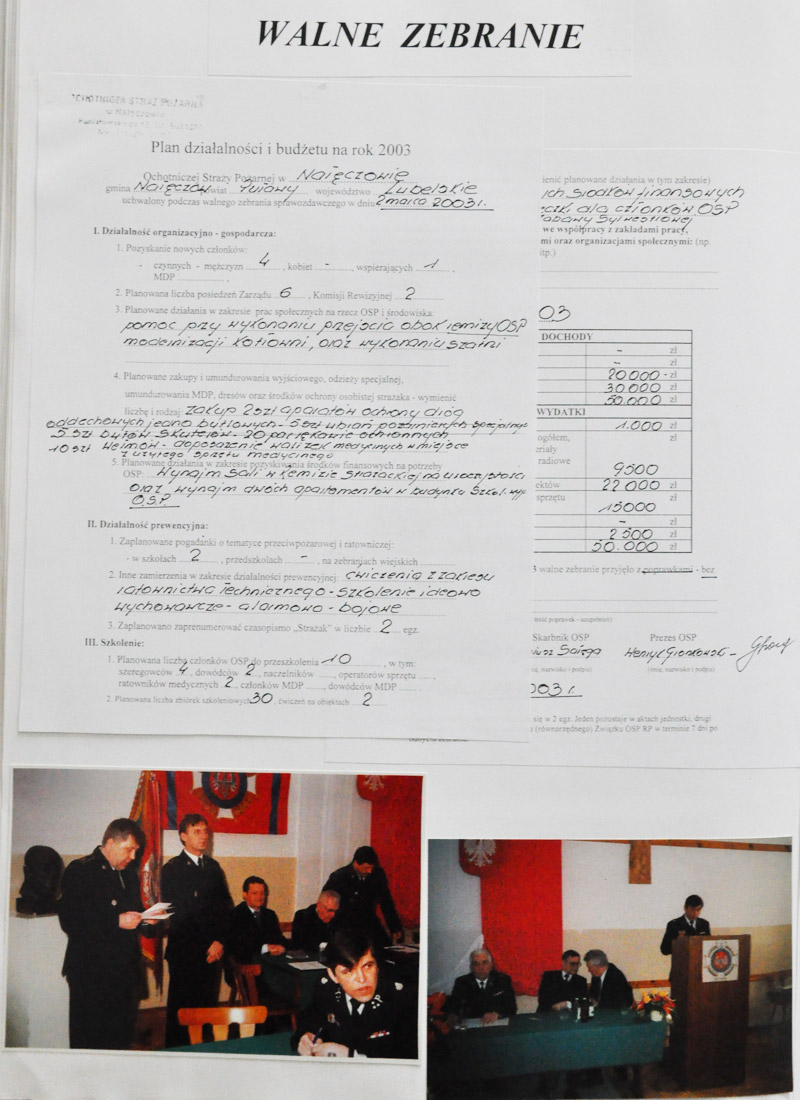 WALNE ZEBRANIE
OCHOTNICZA STRAŻ POŻARNA
w Nałęczowie
Plan działalności i budżetu na rok 2003
Ochotniczej Straży Pożarnej w Nałęczowie
gmina Nałęczów powiat Puławy województwo Lubelskie
uchwalony podczas walnego zebrania sprawozdawczego w dniu 2 marca 2003 r.
I. Działalność organizacyjno - gospodarcza:
1. Pozyskanie nowych członków:
- czynnych - mężczyzn 4, kobiet -, wspierających 1,
MDP
2. Planowana liczba posiedzeń Zarządu 6, Komisji Rewizyjnej 2
3. Planowane działania w zakresie prac społecznych na rzecz OSP i środowiska:
pomoc przy wykonaniu przejścia obok remizy OSP
modernizacji kotłowni, oraz wykonaniu szatni
4. Planowane zakupy i umundurowania wyjściowego, odzieży specjalnej,
umundurowania MDP, dresów oraz środków ochrony osobistej strażaka - wymienić
liczbę i rodzaj: zakup 2 szt aparatów ochrony dróg
oddechowych jedno butlowych - 5 szt ubrań pożarniczych specjalnych
5 szt butów skuterów - 20 par rękawic ochronnych
10 szt hełmów - doposażenie walizek medycznych w miejsce
zużytego sprzętu medycznego
5. Planowana działania w zakresie pozyskiwania środków finansowych na potrzeby
OSP: Wynajm sali w Remizie Strażackiej na uroczystości
oraz wynajm dwóch apartamentów w budynku Szkol. wyp
O.S.P.
II. Działalność prewencyjna:
1. Zaplanowane pogadanki o tematyce przeciwpożarowej i ratowniczej:
- w szkołach 2, przedszkolach -, na zebraniach wiejskich
2. Inne zamierzenia w zakresie działalności prewencyjnej: ćwiczenia z zakresu
ratownictwa technicznego - szkolenie ideowo
wychowawcze - alarmowo - bojowe
3. Zaplanowano zaprenumerować czasopismo „Strażak" w liczbie 2 egz.
III. Szkolenie:
1. Planowana liczba członków OSP do przeszkolenia 10, w tym:
szeregowców 4, dowódców 2, naczelników, operatorów sprzętu,
ratowników medycznych 2, członków MDP, dowódców MDP
2. Planowana liczba zbiórek szkoleniowych 30, ćwiczeń na obiektach 2
ienić planowane działania w tym zakresie)
ich środków finansowych
czki dla członków OSP
zabawy Sylwestrowej
we współpracy z zakładami pracy,
mi oraz organizacjami społecznymi: (np.
itp.)
03
DOCHODY
- zł
- zł
20 000 - zł
30 000 zł
50.000 zł
WYDATKI
1.000 zł
ogółem, zł
eriały
radiowe
9500
ektów 22 000 zł
sprzętu zł
15000
- zł
2 500 zł
50.000 zł
3 walne zebranie przyjęło z poprawkami - bez
Skarbnik OSP Prezes OSP
Henryk
(imię, nazwisko i podpis)
003 r.
się w 2 egz. Jeden pozostaje w aktach jednostki, drugi
(równorzędnego) Związku OSP RP w terminie 7 dni po